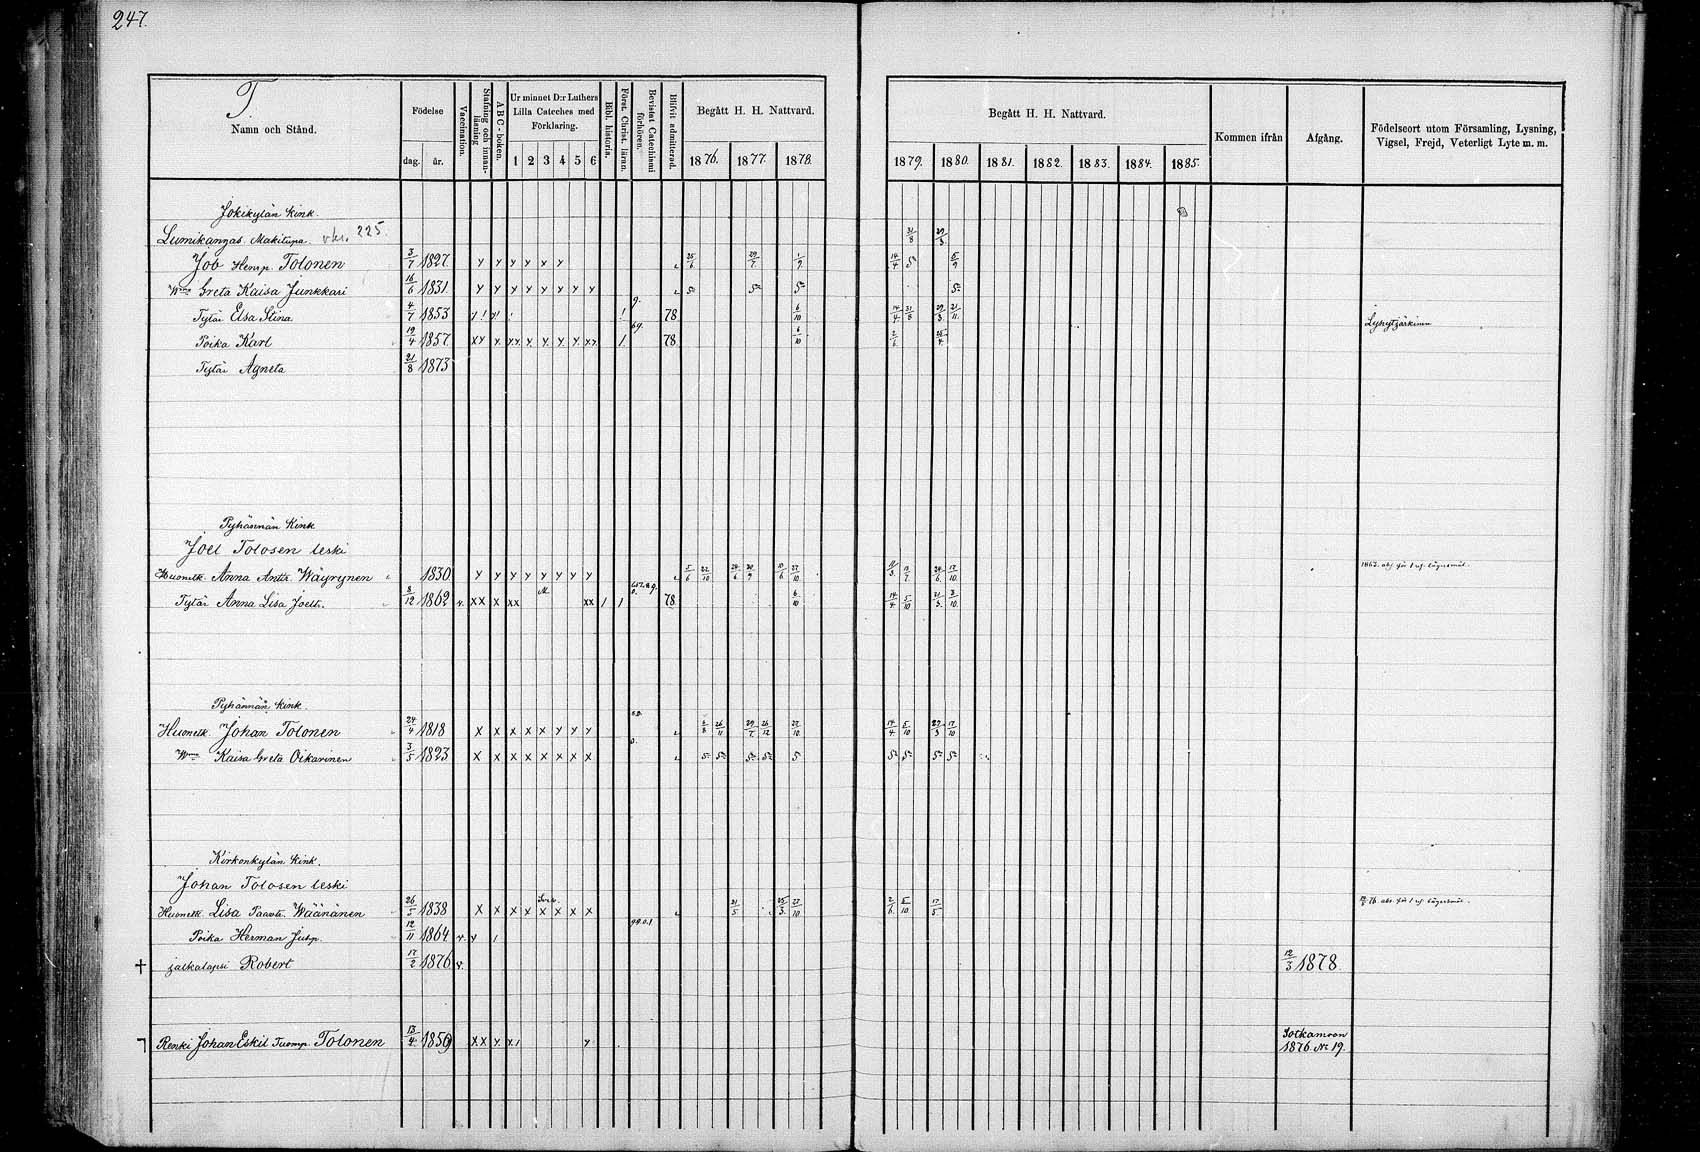 247.
T.
Namn och Stånd.
Födelse
dag. år.
Vaccination.
Stafning och innanläsning
A B C-boken.
Ur minnet D:r Luthers Lilla Cateches med Förklaring.
1 2 3 4 5 6
Bibl. historia.
Först. Christ. läran.
Bevistat Catechismi förhören.
Blifvit admitterad.
Begått H. H. Nattvard.
1876. 1877. 1878.
Begått H. H. Nattvard.
1879. 1880. 1881. 1882. 1883. 1884. 1885.
Kommen ifrån
Afgång.
Födelseort utom Församling, Lysning, Vigsel, Frejd, Veterligt Lyte m. m.
Jokikylän kink.
Lumikangas. Mäkitupa. 225.
31/8 29/3
Job Henrp. Tolonen 3/7 1827 y y y y y y 25/6 29/7 1/9 14/4 5 5/9
Wmo Greta Kaisa Junkkari 16/6 1831 y y y y y y y y 5 5 5 5
Tytär Elsa Stina 4/7 1853 78 6/10 14/4 31/8 29/3 21/11
Poika Karl 19/4 1857 78 6/10 2/6 25/4
Tytär Agneta 21/8 1873
Pyhännän Kink
Joel Tolosen leski
Huonelk. Anna Antt. Wäyrynen 1830 y y y y y y y y 5/6 22/10 24/6 30/9 10/6 27/10 13/7 24/6 17/10
Tytär Anna Lisa Joelt. 8/12 1862 v. xx x xx xx / / 78 6/10 14/4 5/10 31/3 3/10
Pyhännän kink.
Huonelk. Johan Tolonen 24/4 1818 x x x x x y y y 26/11 29/7 26/12 27/10 14/4 5/10 29/3 17/10
Wmo Kaisa Greta Oikarinen 3/5 1823 x x x x x x x x 5 5 5 5 5 5 5 5 5
Kirkonkylän kink.
Johan Tolosen leski
Huonelk. Lisa Paavot. Wäänänen 26/5 1838 x x x x x x x x 21/5 25/3 27/10 2/6 5/10 17/5
Poika Herman Juhp. 12/11 1864 v. y /
jalkalapsi Robert 17/2 1876 v. 12/3 1878
Renki Johan Eskil Tuomp. Tolonen 13/4 1859 xx y. y
Sotkamoon
1876. No 19.